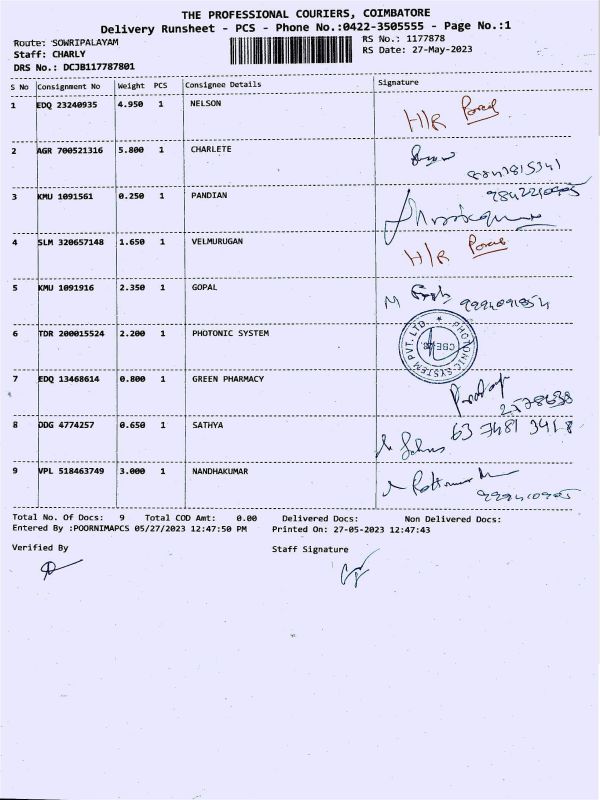 THE PROFESSIONAL COURIERS, COIMBATORE
Delivery Runsheet - PCS - Phone No.:0422-3505555 - Page No.:1
Route: SOWRIPALAYAM
RS No.: 1177878
Staff: CHARLY
RS Date: 27-May-2023
DRS No.: DCJB117787801
S No Consignment No Weight PCS Consignee Details Signature
1 EDQ 23240935 4.950 1 NELSON H/R
2 AGR 700521316 5.800 1 CHARLETE
3 KMU 1091561 0.250 1 PANDIAN
4 SLM 320657148 1.650 1 VELMURUGAN H/R
5 KMU 1091916 2.350 1 GOPAL M
6 TDR 200015524 2.200 1 PHOTONIC SYSTEM
PHOTONIC SYSTEM PVT. LTD. ★
7 EDQ 13468614 0.800 1 GREEN PHARMACY
8 DDG 4774257 0.650 1 SATHYA
9 VPL 518463749 3.000 1 NANDHAKUMAR
Total No. Of Docs: 9 Total COD Amt: 0.00 Delivered Docs: Non Delivered Docs:
Entered By :POORNIMAPCS 05/27/2023 12:47:50 PM Printed On: 27-05-2023 12:47:43
Verified By
Staff Signature